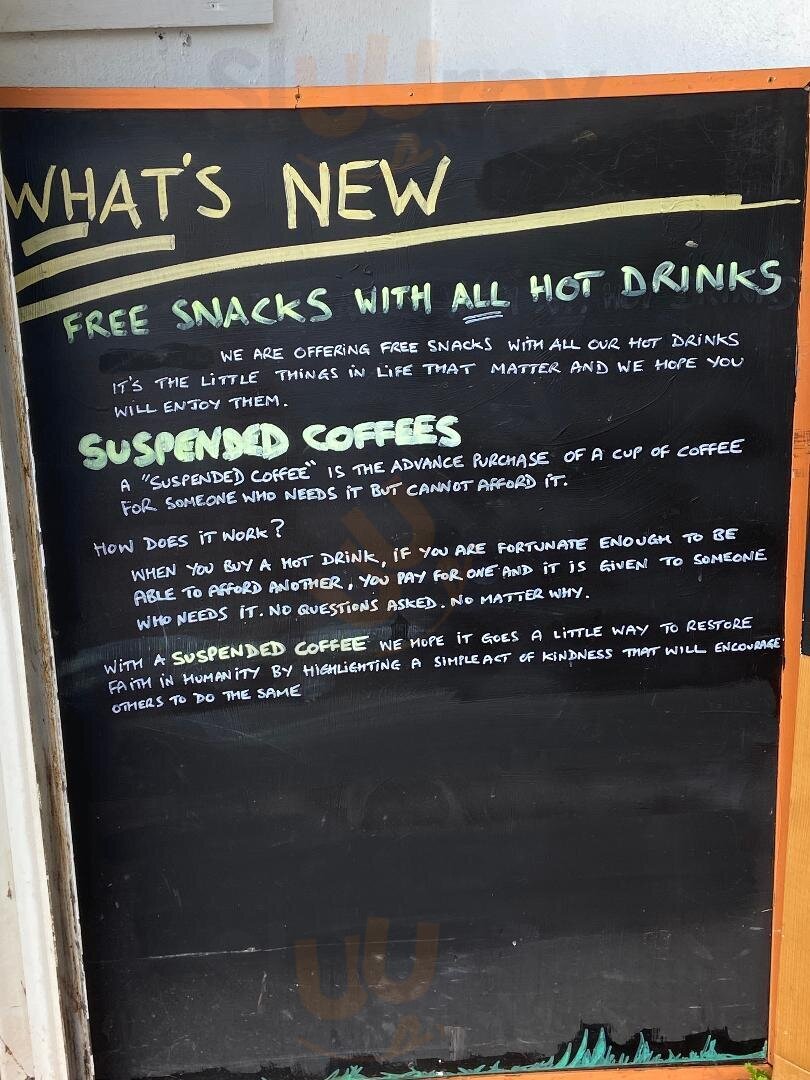 WHAT'S NEW
FREE SNACKS WITH ALL HOT DRINKS
WE ARE OFFERING FREE SNACKS WITH ALL OUR HOT DRINKS
IT'S THE LITTLE THINGS IN LIFE THAT MATTER AND WE HOPE YOU
WILL ENJOY THEM.
SUSPENDED COFFEES
A "SUSPENDED COFFEE" IS THE ADVANCE PURCHASE OF A CUP OF COFFEE
FOR SOMEONE WHO NEEDS IT BUT CANNOT AFFORD IT.
HOW DOES IT WORK?
WHEN YOU BUY A HOT DRINK, IF YOU ARE FORTUNATE ENOUGH TO BE
ABLE TO AFFORD ANOTHER, YOU PAY FOR ONE AND IT IS GIVEN TO SOMEONE
WHO NEEDS IT. NO QUESTIONS ASKED. NO MATTER WHY.
WITH A SUSPENDED COFFEE WE HOPE IT GOES A LITTLE WAY TO RESTORE
FAITH IN HUMANITY BY HIGHLIGHTING A SIMPLE ACT OF KINDNESS THAT WILL ENCOURAGE
OTHERS TO DO THE SAME